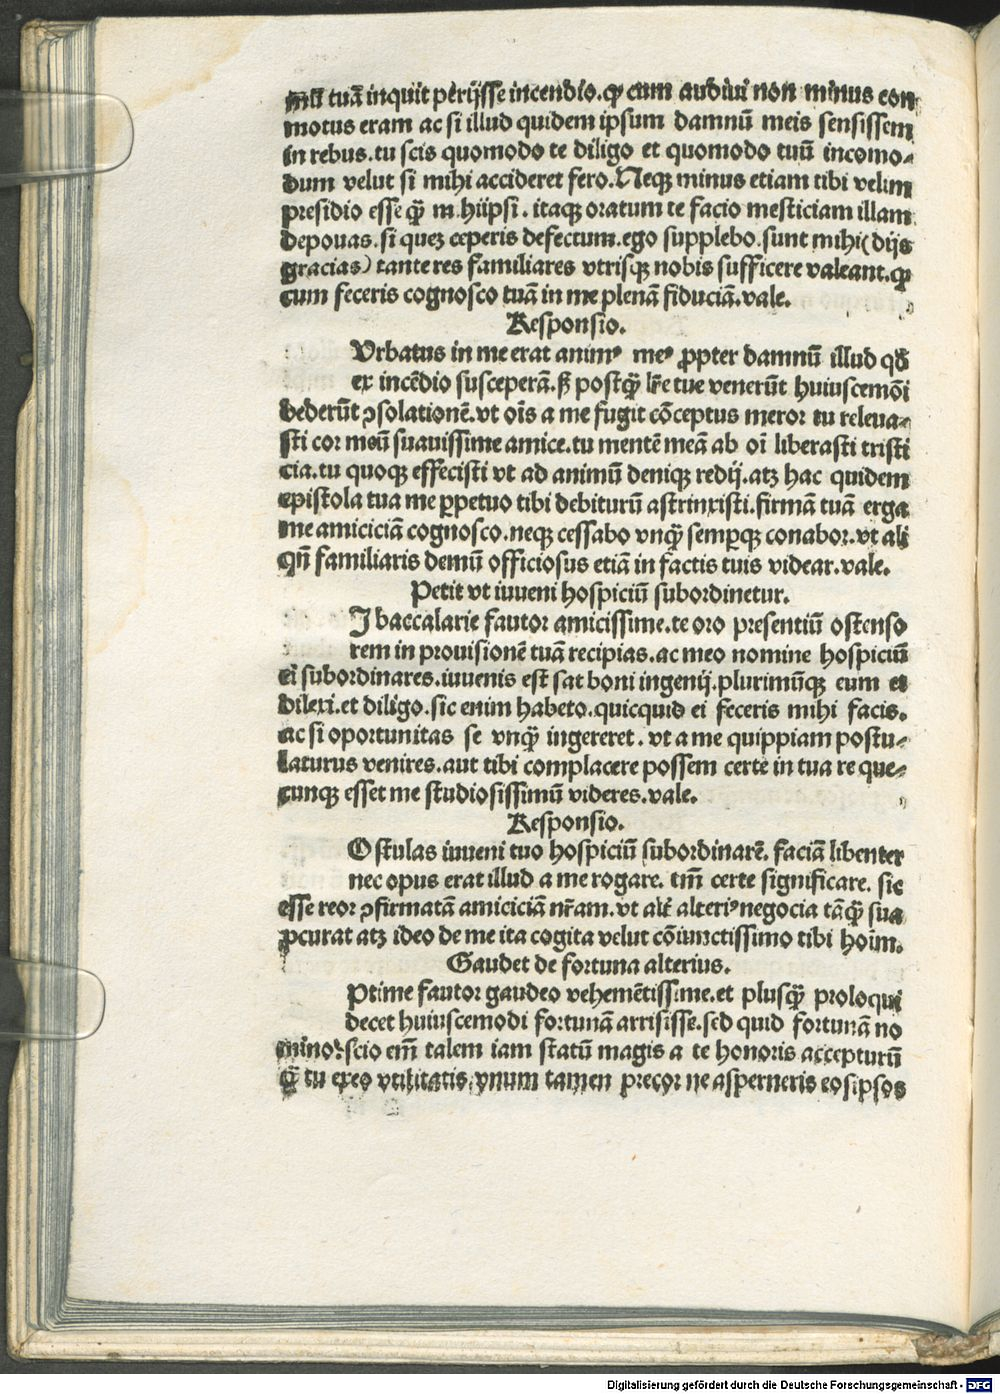 mĩ tuã inquit perijsse incendio.ꝙ cum audiui non minus con
motus eram ac si illud quidem ipsum damnũ meis sensissem
in rebus.tu scis quomodo te diligo et quomodo tuũ incomo⸗
dum velut si mihi accideret fero.Neqꝫ minus etiam tibi velim
presidio esse q̃ʒ m.hiipsi. itaqꝫ oratum te facio mesticiam illam
deponas.si queꝫ ceperis defectum.ego supplebo.sunt mihi(dijs
gracias) tante res familiares vtrisqꝫ nobis sufficere valeant.ꝙ
cum feceris cognosco tuã in me plenã fiduciã.vale.
Responsio.
Vrbatus in me erat animꝰ meꝰ ꝓpter damnũ illud qď
ex incẽdio susceperã.sʒ postq̃ʒ lr̃e tue venerũt huiuscemõi
dederũt ꝯsolationẽ.vt oĩs a me fugit cõceptus meror tu releua⸗
sti cor meũ suauissime amice.tu mentẽ meã ab oĩ liberasti tristi
cia.tu quoqꝫ effecisti vt ad animũ deniqꝫ redij.atꝫ hac quidem
epistola tua me ꝑpetuo tibi debiturũ astrinxisti.firmã tuã erga
me amiciciã cognosco.neqꝫ cessabo vnq̃ʒ semꝑqꝫ conabor.vt ali
qñ familiaris demũ officiosus etiã in factis tuis videar.vale.
Petit vt iuueni hospiciũ subordinetur.
I baccalarie fautor amicissime.te oro presentiũ ostenso
rem in prouisionẽ tuã recipias.ac meo nomine hospiciũ
ei subordinares.iuuenis est sat boni ingenij.plurimũqꝫ eum et
dilexi.et diligo.sic enim habeto.quicquid ei feceris mihi facis.
ac si oportunitas se vnq̃ʒ ingereret.vt a me quippiam postu⸗
laturus venires.aut tibi complacere possem certe in tua re que⸗
cunqꝫ esset me studiosissimũ videres.vale.
Responsio.
Ostulas iuueni tuo hospiciũ subordinarẽ.faciã libenter
nec opus erat illud a me rogare. tm̃ certe significare. sic
esse reor ꝯfirmatã amiciciã nr̃am.vt alť alteriꝰ negocia tãq̃ʒ sua
ꝓcurat atꝫ ideo de me ita cogita velut cõiunctissimo tibi hoĩm.
Gaudet de fortuna alterius.
Ptime fautor gaudeo vehemẽtissime.et plusq̃ʒ proloqui
decet huiuscemodi fortunã arrisisse.sed quid fortunã no
mino?scio em̃ talem iam statũ magis a te honoris accepturũ
q̃ʒ tu ex eo vtilitatis.vnum tamen precor ne asperneris eosipsos
Digitalisierung gefördert durch die Deutsche Forschungsgemeinschaft - DFG